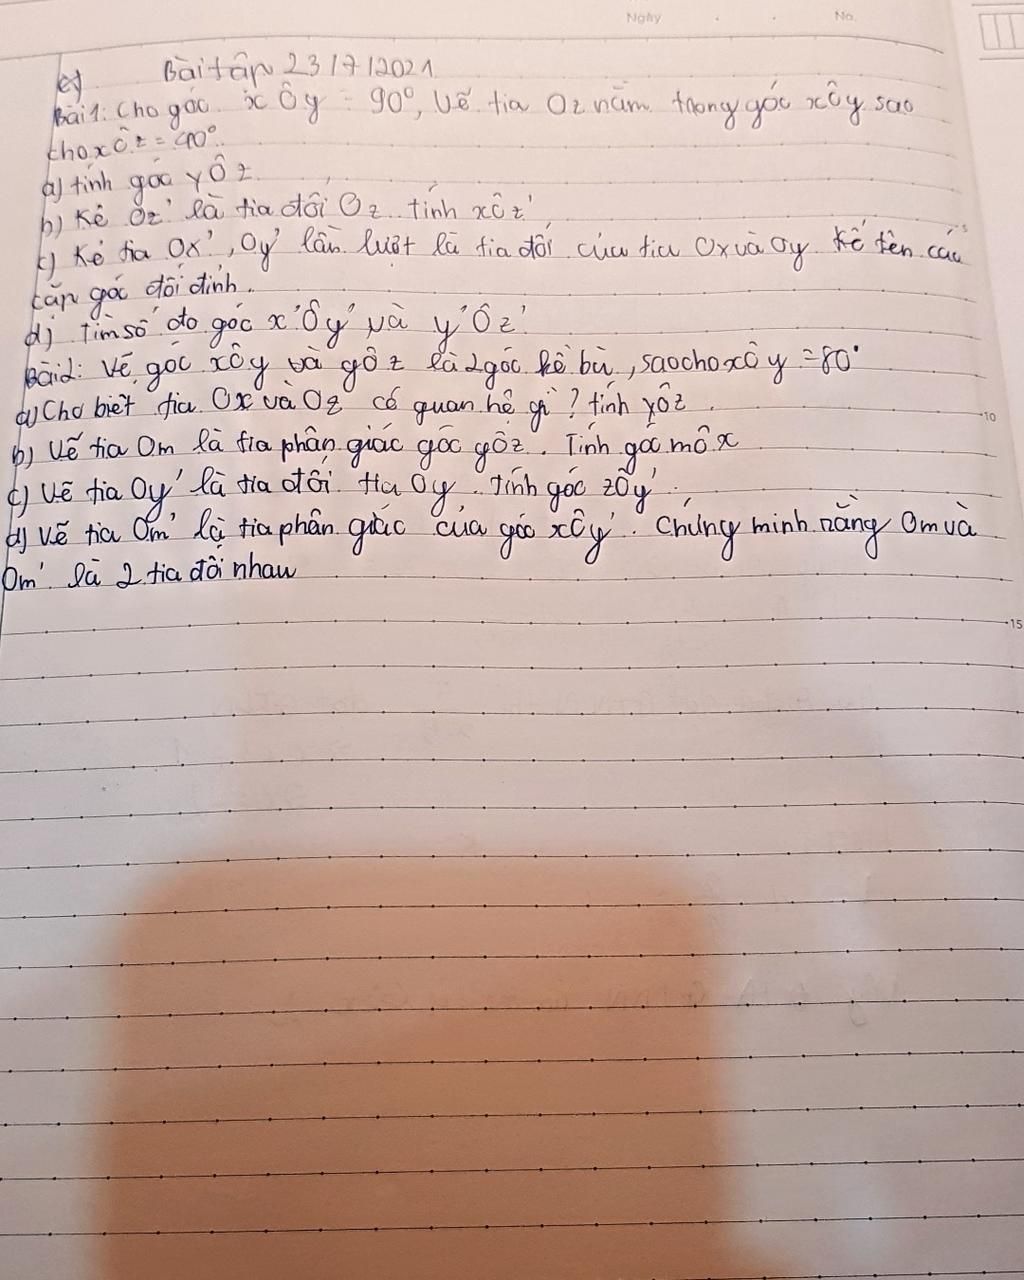 Ngày . . No.
Bài tập 23/7/2021
Bài 1: Cho góc xÔy = 90°, Vẽ tia Oz nằm trong góc xÔy sao
cho xÔz = 40°.
a) tính góc yÔz.
b) Kẻ Oz' là tia đối Oz tính xÔz'
c) Kẻ tia Ox', Oy' lần lượt là tia đối của tia Ox và Oy kể tên các
cặp góc đối đỉnh.
d) Tìm số đo góc x'Ôy' và y'Ôz'
Bài 2: Vẽ góc xÔy và yÔz là 2 góc kề bù, sao cho xÔy = 80°
a) Cho biết tia Ox và Oz có quan hệ gì? tính yÔz.
10
b) Vẽ tia Om là tia phân giác góc yÔz. Tính góc mÔx
c) Vẽ tia Oy' là tia đối tia Oy. tính góc zÔy'.
d) Vẽ tia Om' là tia phân giác của góc xÔy'. Chứng minh rằng Om và
Om' là 2 tia đối nhau
15